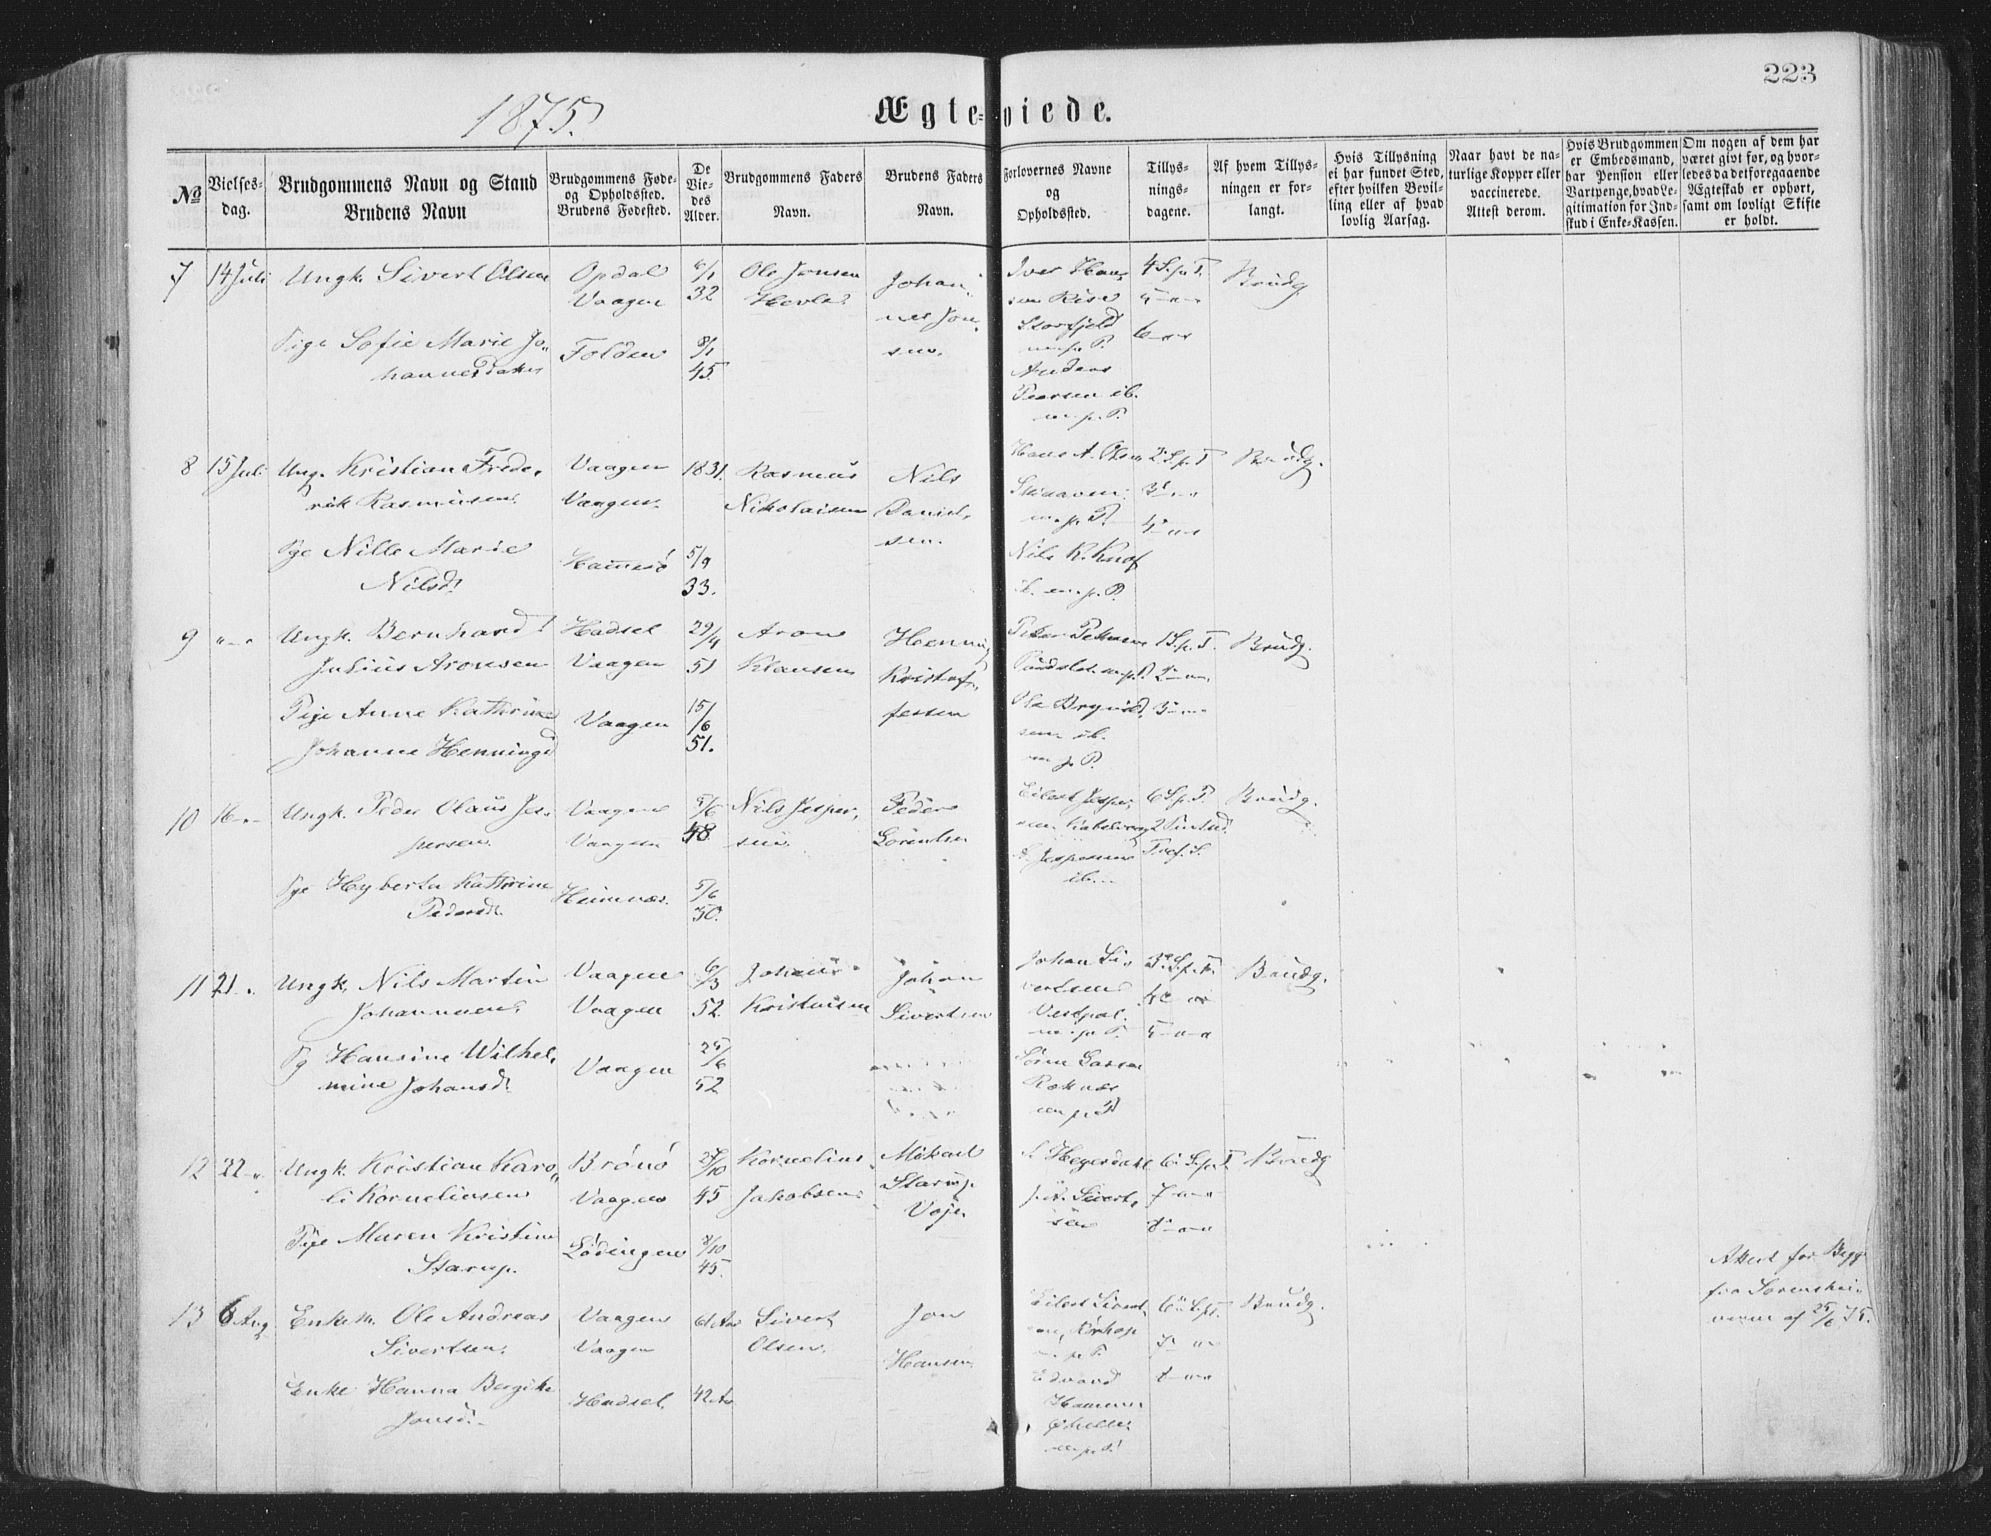 223
1875.
Ægteviede.
No
Vielses-
dag.
Brudgommens Navn og Stand
Brudens Navn
Brudgommens Føde-
og Opholdssted.
Brudens Fødested.
De
Vie-
des
Alder.
Brudgommens Faders
Navn.
Brudens Faders
Navn.
Forlovernes Navne
og
Opholdssted.
Tillys-
nings-
dagene.
Af hvem Tillys-
ningen er for-
langt.
Hvis Tillysning
ei har fundet Sted,
efter hvilken Bevil-
ling eller af hvad
lovlig Aarsag.
Naar havt de na-
turlige Kopper eller
vaccinerede.
Attest derom.
Hvis Brudgommen
er Embedsmand,
har Pension eller
Vartpenge, hvad Le-
gitimation for Ind-
skud i Enke-Kassen.
Om nogen af dem har
været givt før, og hvor-
ledes da det foregaaende
Ægteskab er ophørt,
samt om lovligt Skifte
er holdt.
7 14 Juli
Ungk. Sivert Olsen
Pige Sofie Marie Jo-
hannesdatter
Opdal
Vaagen
Folden
6/1
32
8/1
45.
Ole Jonsen
Hevle
Johan-
nes Jon-
sen.
Iver Han-
sen Rise
Storfjeld
m. p. P.
Anders
Pedersen ib.
m. p. P.
4 S. p. T.
5 - " - "
6 - " - "
Brudg.
8 15 Juli
Ung. Kristian Frede-
rik Rasmusen.
Pge Nille Marie
Nilsd.
Vaagen
Vaagen.
Hammerø
1831.
5/9
33.
Rasmus
Nikolaisen
Nils
Daniel-
sen.
Hans A. Olsen
m. p. P.
Nils R. Knof
ib. m. p. P.
2 S. p. T
3 - " - "
4 - " - "
Brudg.
9 " - "
Ungk. Bernhard
Julius Aronsen
Pige Anne Kathrine
Johanne Henningsd
Hadsel
Vaagen
Vaagen
29/4
51
15/6
51.
Aron
Klausen
Henning
Kristof-
fersen
Peter
m. p. P.
Ole Brynild-
sen ib.
m. p. P.
1 S. p. T.
2 - " - "
3 - " - "
Brudg.
10 16 - " -
Ungk. Peder Olaus Jes-
persen.
Pge Hyberta Kathrine
Pedersd.
Vaagen
Vaagen
5/6
48
5/6
50.
Nils Jesper-
sen.
Peder
Lorentsen
Eilert Jesper-
sen Kabelvaag
Jespersen
ib.
6 S. p. T.
Brudg.
11 21 - "
Ungk. Nils Martin
Johannesen.
Pg Hansine Wilhel-
mine Johansd.
Vaagen
Vaagen
Vaagen
6/3
52.
25/6
52
Johans
Kristensen
Johan
Sivertsen
Johan Si-
vertsen
m. p. P.
m. p. P
3 S. p. T.
5 - " - "
Brudg.
12 22 - "
Ungk. Kristian Karo-
li Korneliusen
Pige Maren Kristine
Starup.
Brønø
Vaagen
Lødingen
27/10
45
8/10
45.
Kornelius
Jakobsen
Mikael
Starup
Voje
Hegerdahl
Sivert-
sen
6 S. p. T.
7 - " - "
8 - " - "
Brudg
13 6 Aug
Enkem. Ole Andreas
Sivertsen.
Enke Hanna Bergite
Jonsd.
Vaagen
Vaagen
Hadsel.
61 Aar
42 Aar
Sivert
Olsen.
Jon
Hansen
Eilert Sivert-
sen, Kirkop
m. p. P.
Edvard
Hammer
m. p. P.
6 S. p. T.
7 - " - "
8 - " - "
Brudg.
Attest for Begge
fra Sorenskri-
veren af 25/6 75.